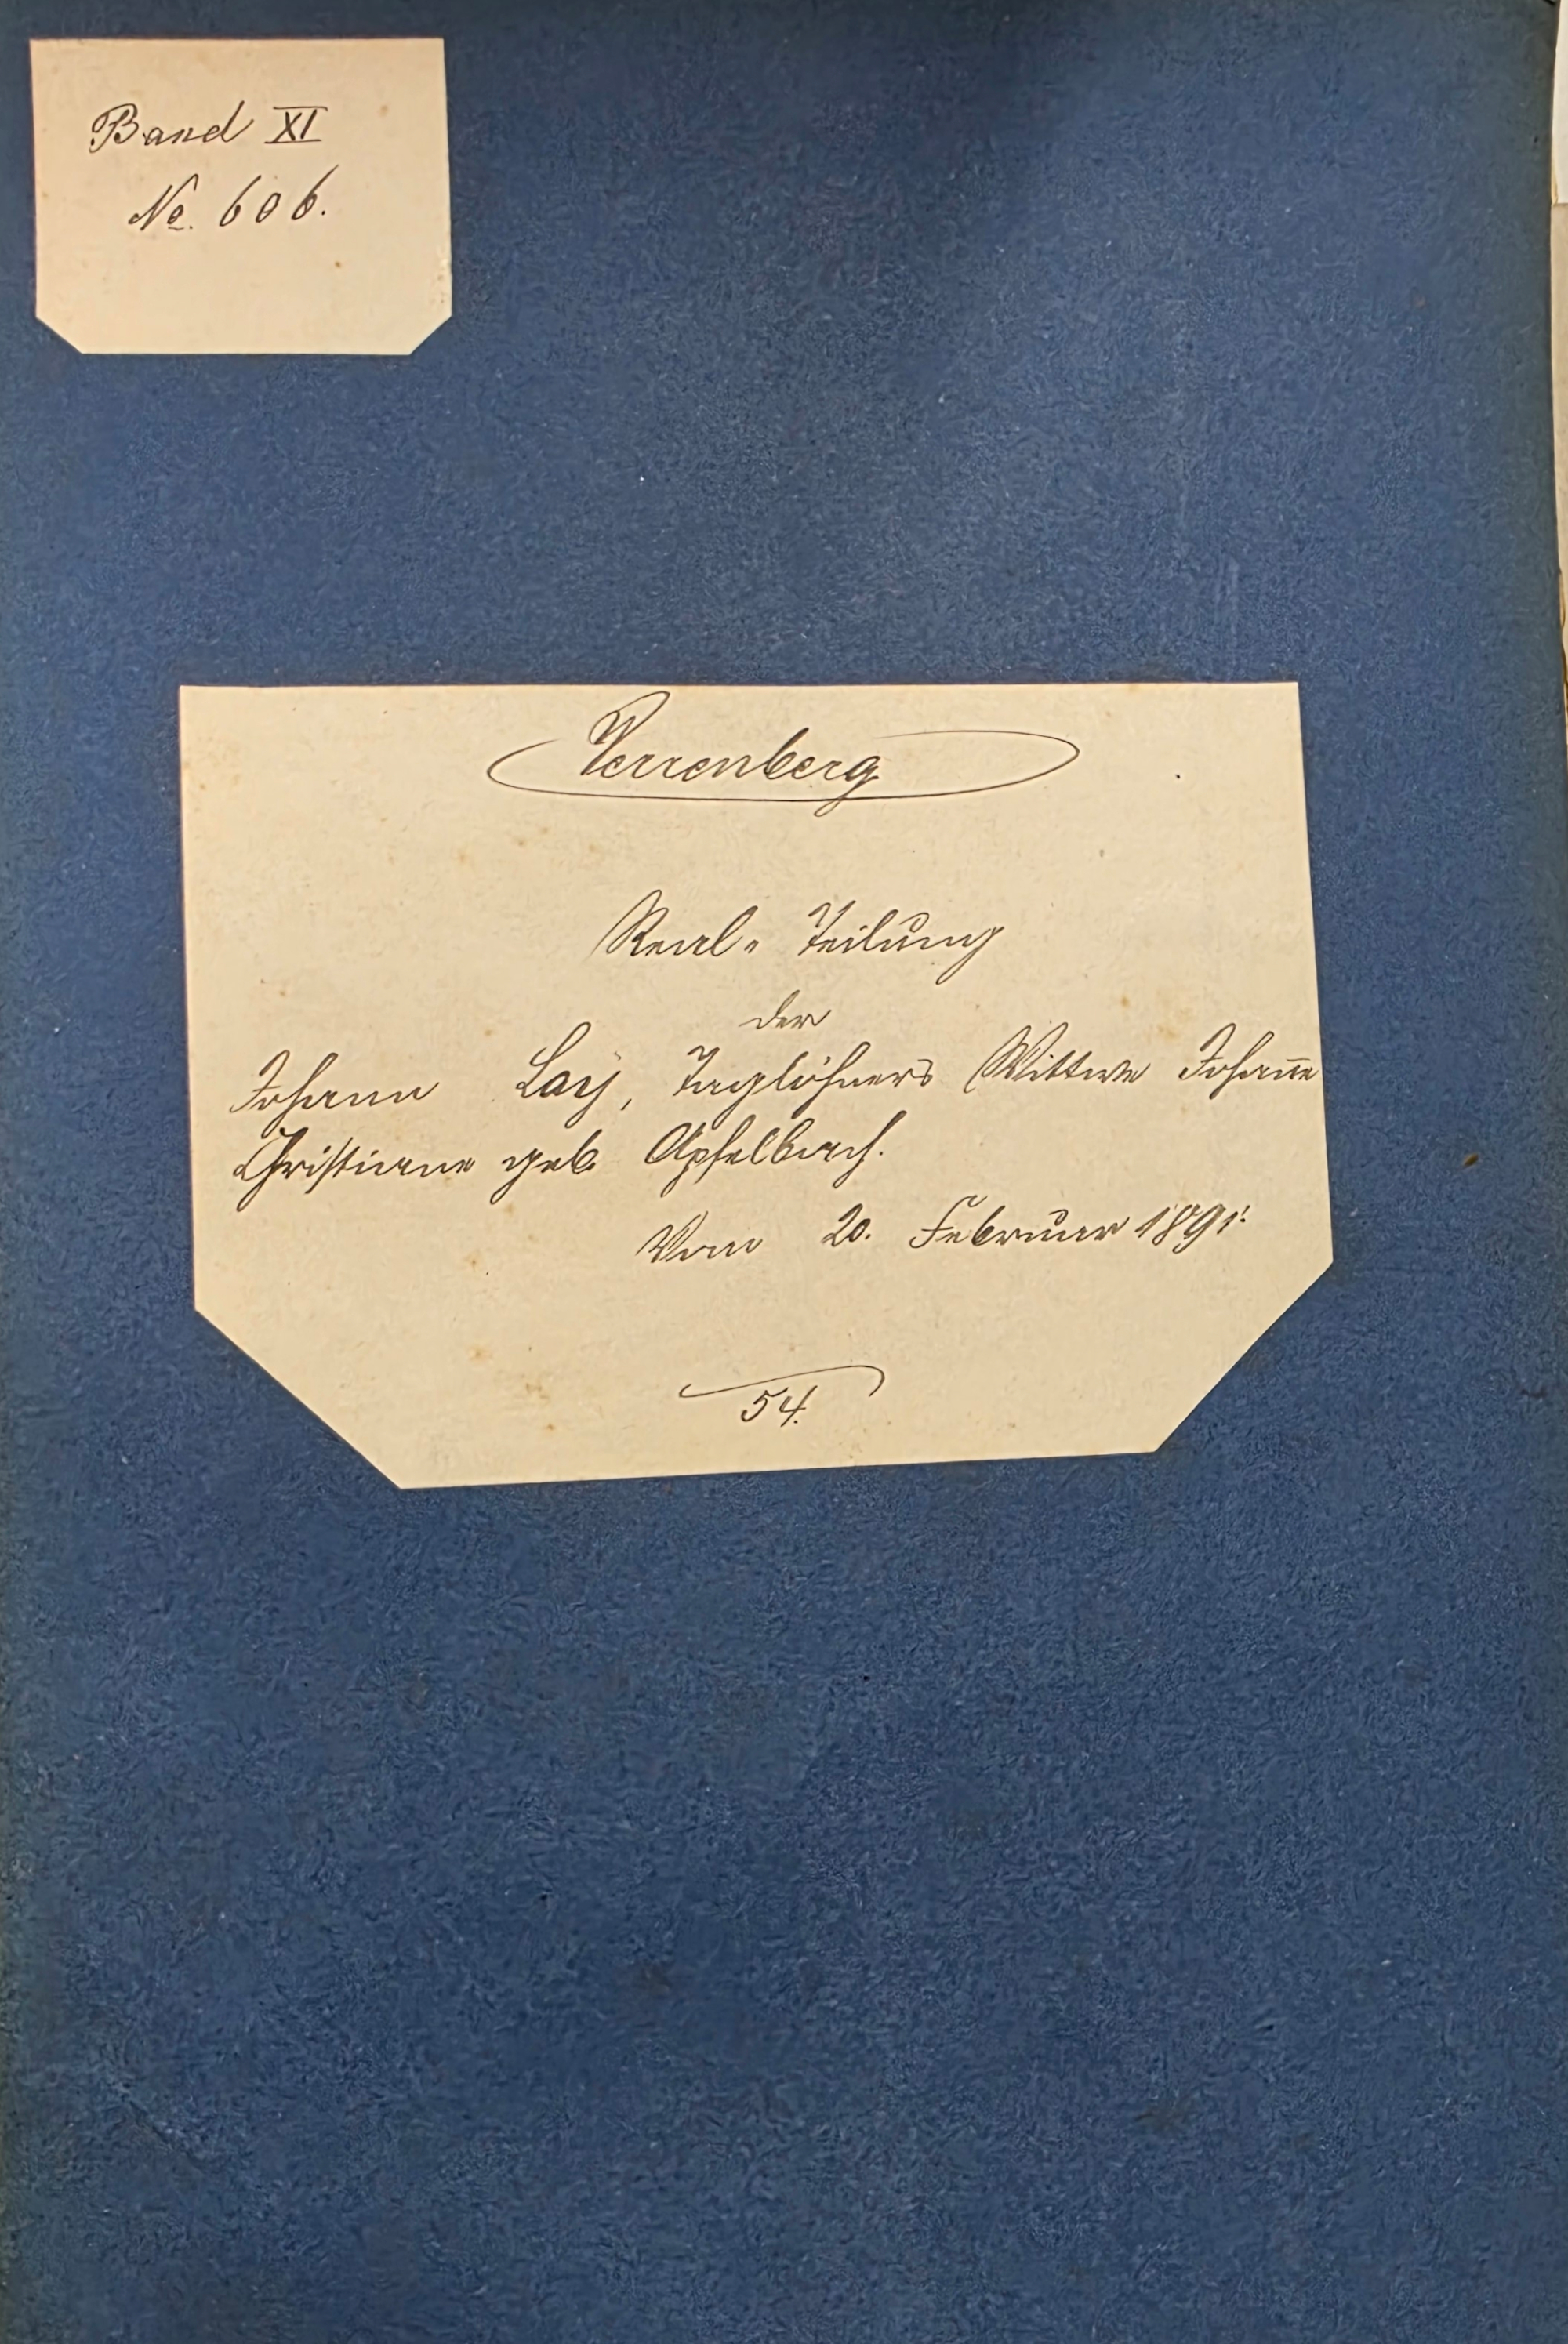 Band XI
No. 606.
Verrenberg
Real-Teilung
der
Johann Lay, Taglöhners Wittwe Johan̄e
Christiane geb. Apfelbach.
Vom 20. Februar 1891.
54.